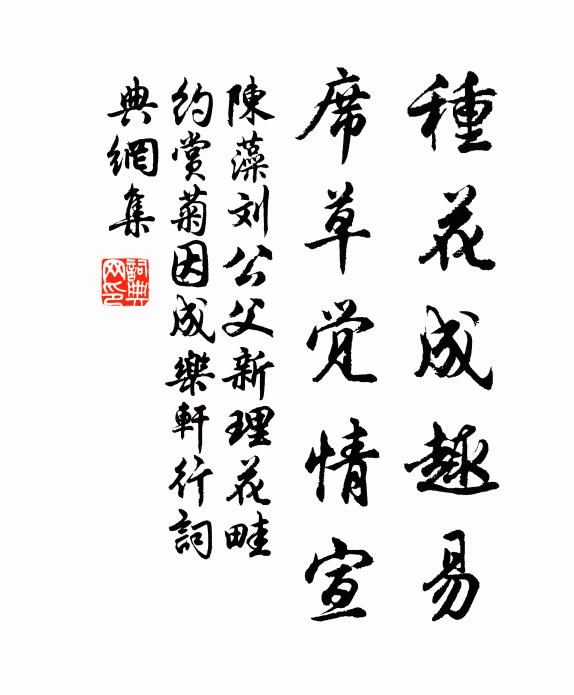 種花成趣易
席草覚情宣
陳藻刘公父新理花畦
约赏菊因成樂軒行詞
典網集
詞典网印